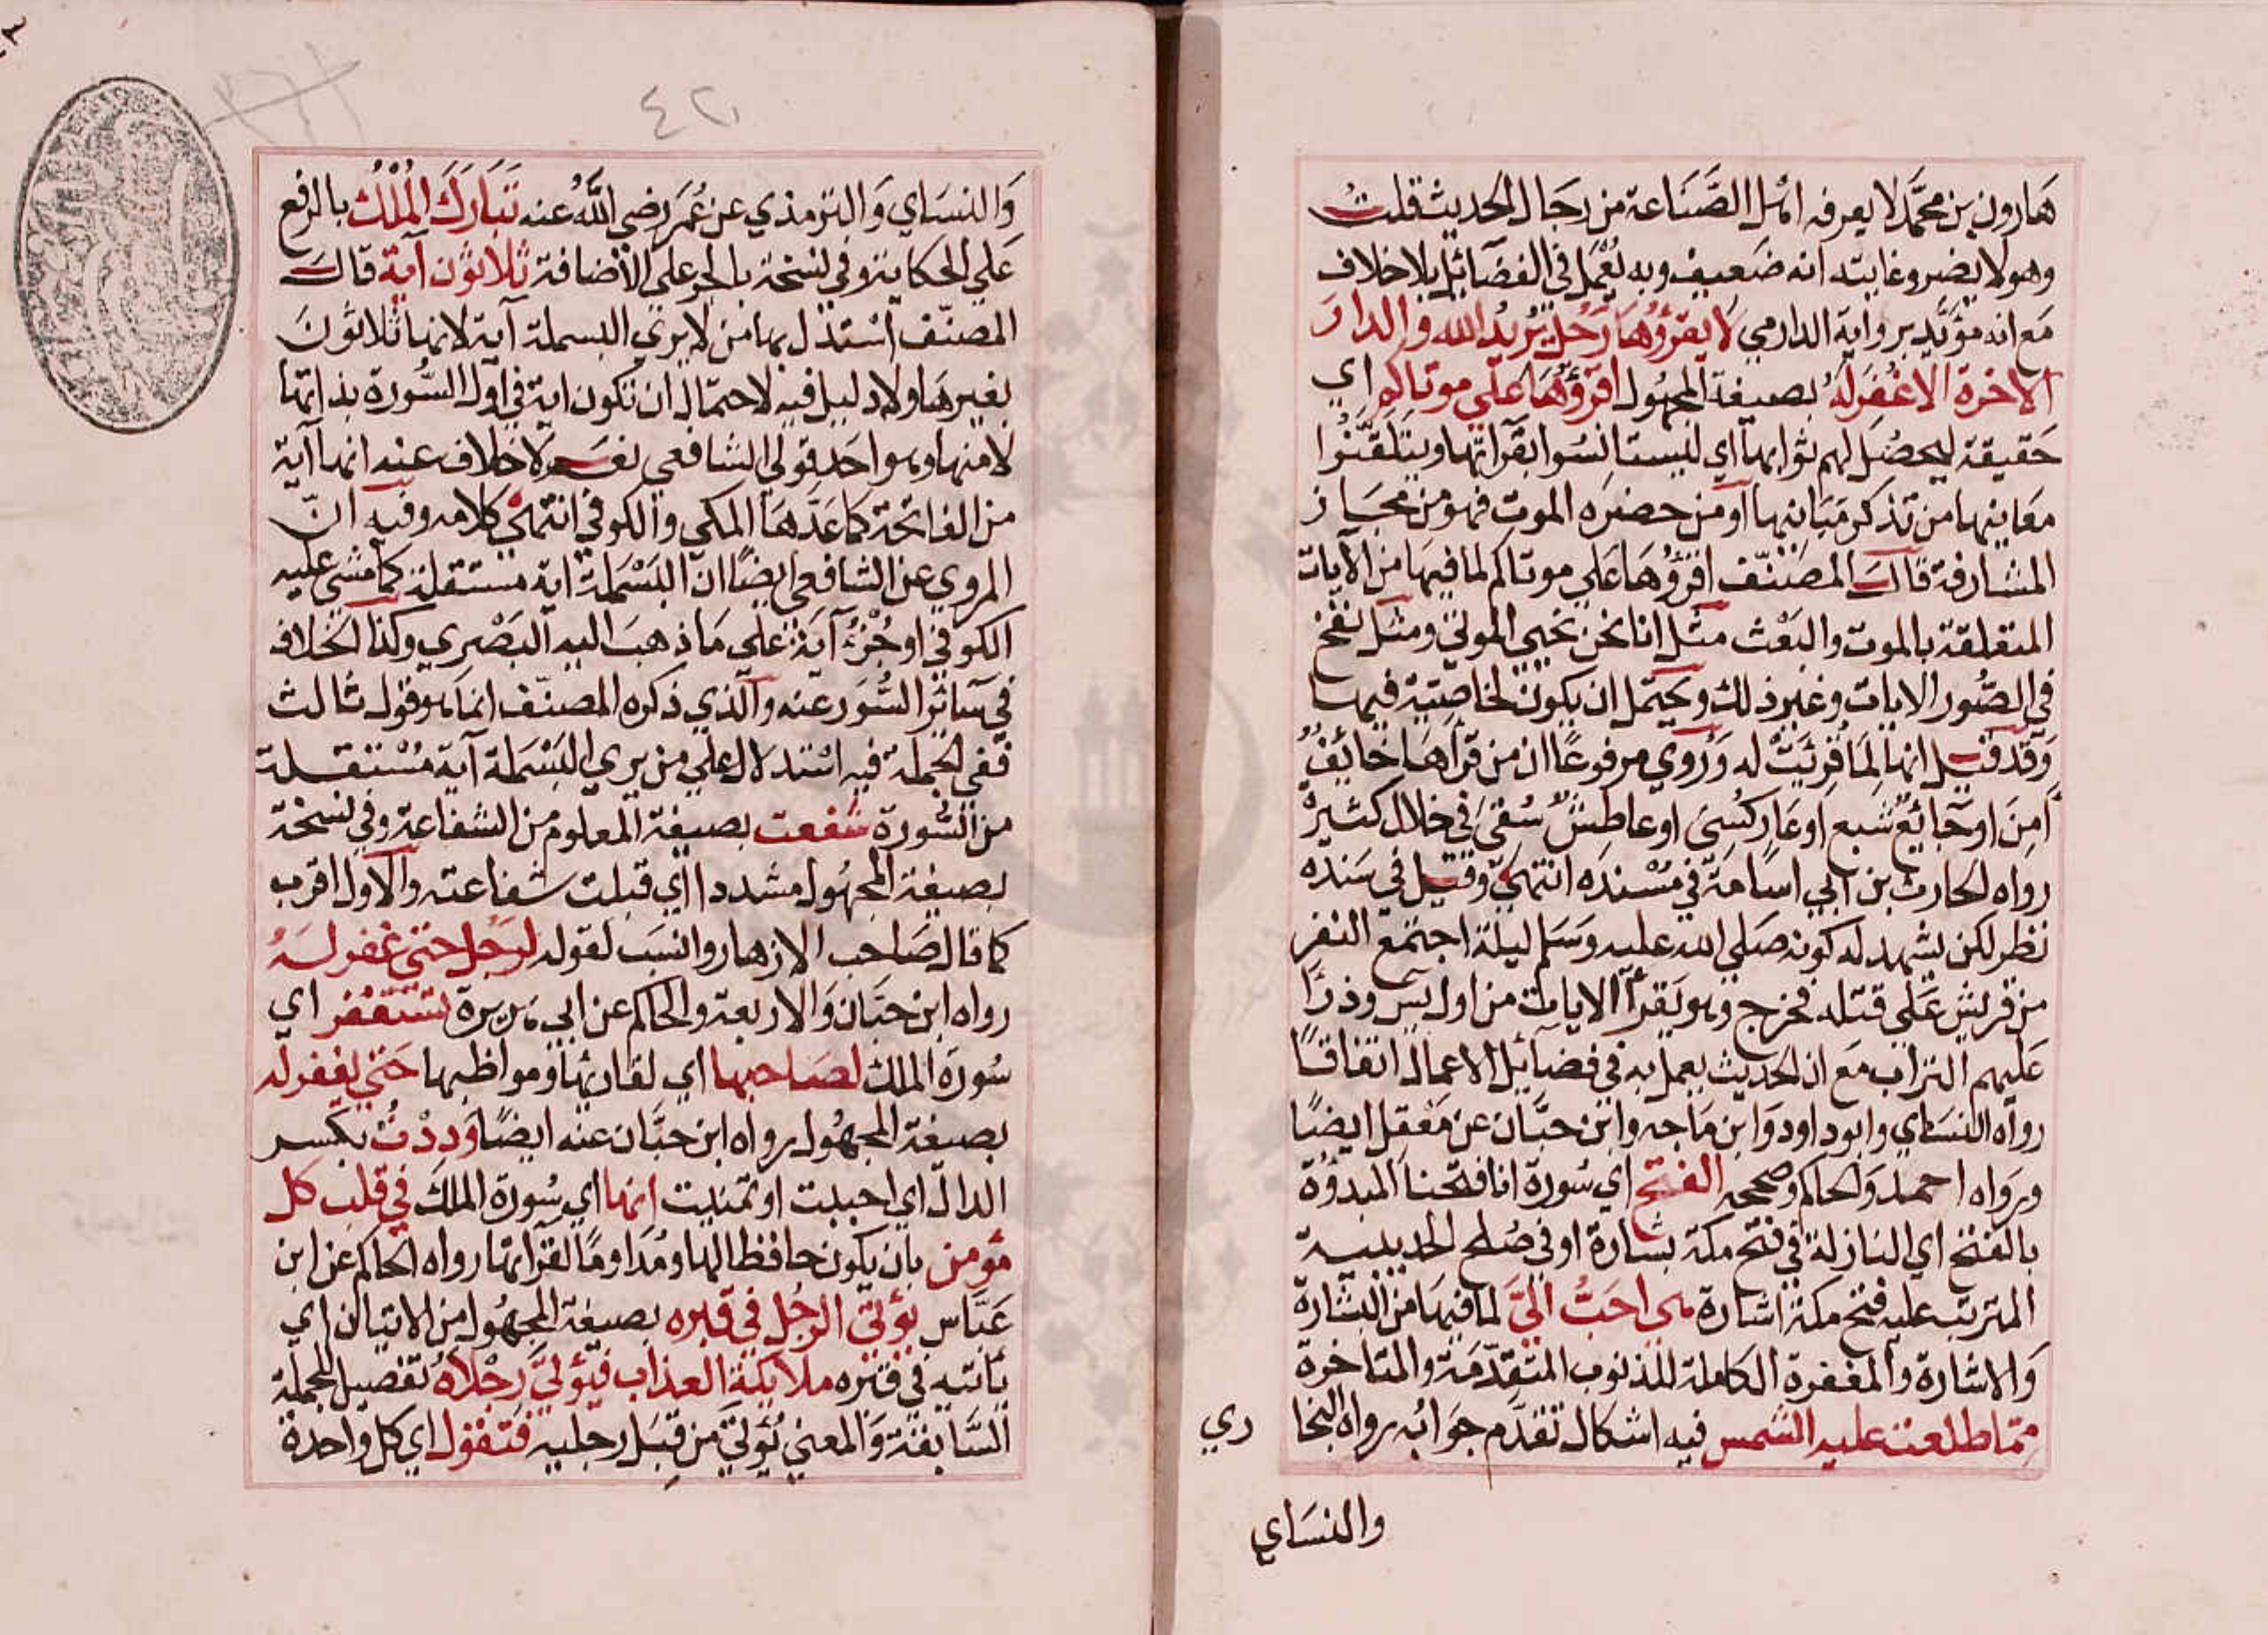 هَارون بن محمَّد لا يعرفه اهل الصَّنَاعة من رجَال الحديث قلت
وهو لا يضر وغايته انه ضعيف وبه يُعْمَل في الفضَائِل بلا خلاف
مَع انه مؤيَّد برواية الدارمي لَا يقرؤُهَا رَجُل يُريدُ الله والدارَ
الاخرة الا غُفرَلَهُ بصيغة المجهُول اقرؤُهَا عَلي موتاكم اي
حَقيقة ليحصُل لهم ثوابها اي ليستانسُوا بقراتها ويتلقَّنُوا
معَانيها من تذكر مَبَانيها او من حضرَه الموت فهو من مجَاز
المشارفة قال المصَنّف اقرؤُهَا عَلي موتاكم لما فيهَا من الآيات
المتعلقة بالموت والبَعْث مثل انا نحن نحيي الموتي ومثل نفخ
في الصُّور الايات وغير ذلك ويحتمل ان يكون لخاصّيّة فيها
وَقد قيل انها لِمَا قُرِئَتْ له وَرُوي مرفوعًا ان من قرأهَا خائفٌ
أَمِنَ او جَائعٌ شبع او عَار كُسِيَ او عاطِشٌ سُقيَ في خلال كثيرة
رواه الحارث بن ابي اسَامَة في مُسْندَه انتهيٰ وقيل في سَنَده
نظر لكن يشهد له كونه صَلي الله عليه وسَلم ليلة اجتمع النفر
من قريش عَلي قتله فخرج وهو يَقرأ الايات من اول يس وذرَّا
عَليهم التراب مَع ان الحديث يعمل به في فضَائِل الاعمال اتفاقًا
رواه النسَاي وابو داود وَابن مَاجه وابن حبَّان عن مَعْقل ايضًا
ورَواه احمد وَالحاكم وصححه الفتح اي سُورة انا فتحنا المبدوُة
بالفتح اي النازلة في فتح مكة بشارة او في صُلح الحديبية
المترتب عليه فتح مكة اشارة هي احَبُّ اليَّ لما فيهَا من البشارة
وَالاشارة والمغفرة الكاملة للذنوب المتقدّمَة والمتاخرة
مِمّا طلعت عليه الشمس فيه اشكال تقدَّم جوَابُه رواه البخا ري
والنسَاي
٤٢
وَالنسَاي وَالترمذي عن عُمَرَ رضي اللَّهُ عنه تَبَارَكَ المُلْكُ بالرفع
عَلي الحكاية وفي نسخة بالجر علي الاضافة ثلاثون آية قال
المصنّف استدل بها من لا يري البسملة آية لانها ثلاثونَ
بغيرهَا ولا دليل فيه لاحتمَال ان تكون اية في اول السُّورة بذاتها
لا منها وهو احَد قولي الشافعي نعَم لا خلاف عنه انها آية
من الفاتحة كما عَدَّهَا المكي والكوفي انتهيٰ كلامه وفيه انّ
المروي عن الشافعي ايضًا ان البَسْمَلة اية مستقلة كما مشي عليه
الكوفي او جُزْءُ آية علي مَا ذهبَ اليه البَصْري وكذا الخلاف
في سَائر السُّوَر عنه والّذي ذكره المصنّف انما هو قول ثالث
ففي الجملة فيه اسْتدلال علي من يري البَسْمَلة آية مُسْتقلة
من السُّورة شفعت بصيغة المعلوم من الشفاعة وفي نسخة
بصيغة المجهُول مشددا اي قبلت شفاعته والاول اقرب
كما قال صَاحب الازهار وانسَب لقوله لرَجُل حتي غفر لَهُ
رواه ابن حبَّان وَالاربعة والحاكم عن ابي هريرة تستغفر اي
سُورة الملك لصَاحبها اي لقاريها ومواظبها حَتي يغفر له
بصيغة المجهُول رواه ابن حبَّان عنه ايضًا وَدِدْتُ بكسر
الدال اي احببت او تمنيت انها اي سُورة الملكَ في قلب كل
مؤمن بان يكون حافظا لها ومُدَاومًا لقراتها رواه الحاكم عن ابن
عَبَّاس يؤتيٰ الرجُل في قبره بصيغة المجهُول من الاتيان اي
يَاتيه في قبره ملائكة العذاب فيؤتيٰ رجْلاهُ تفصيل للجملة
السَّابقة وَالمعني يُؤتيٰ من قِبَل رجليه فتقول اي كل واحدة